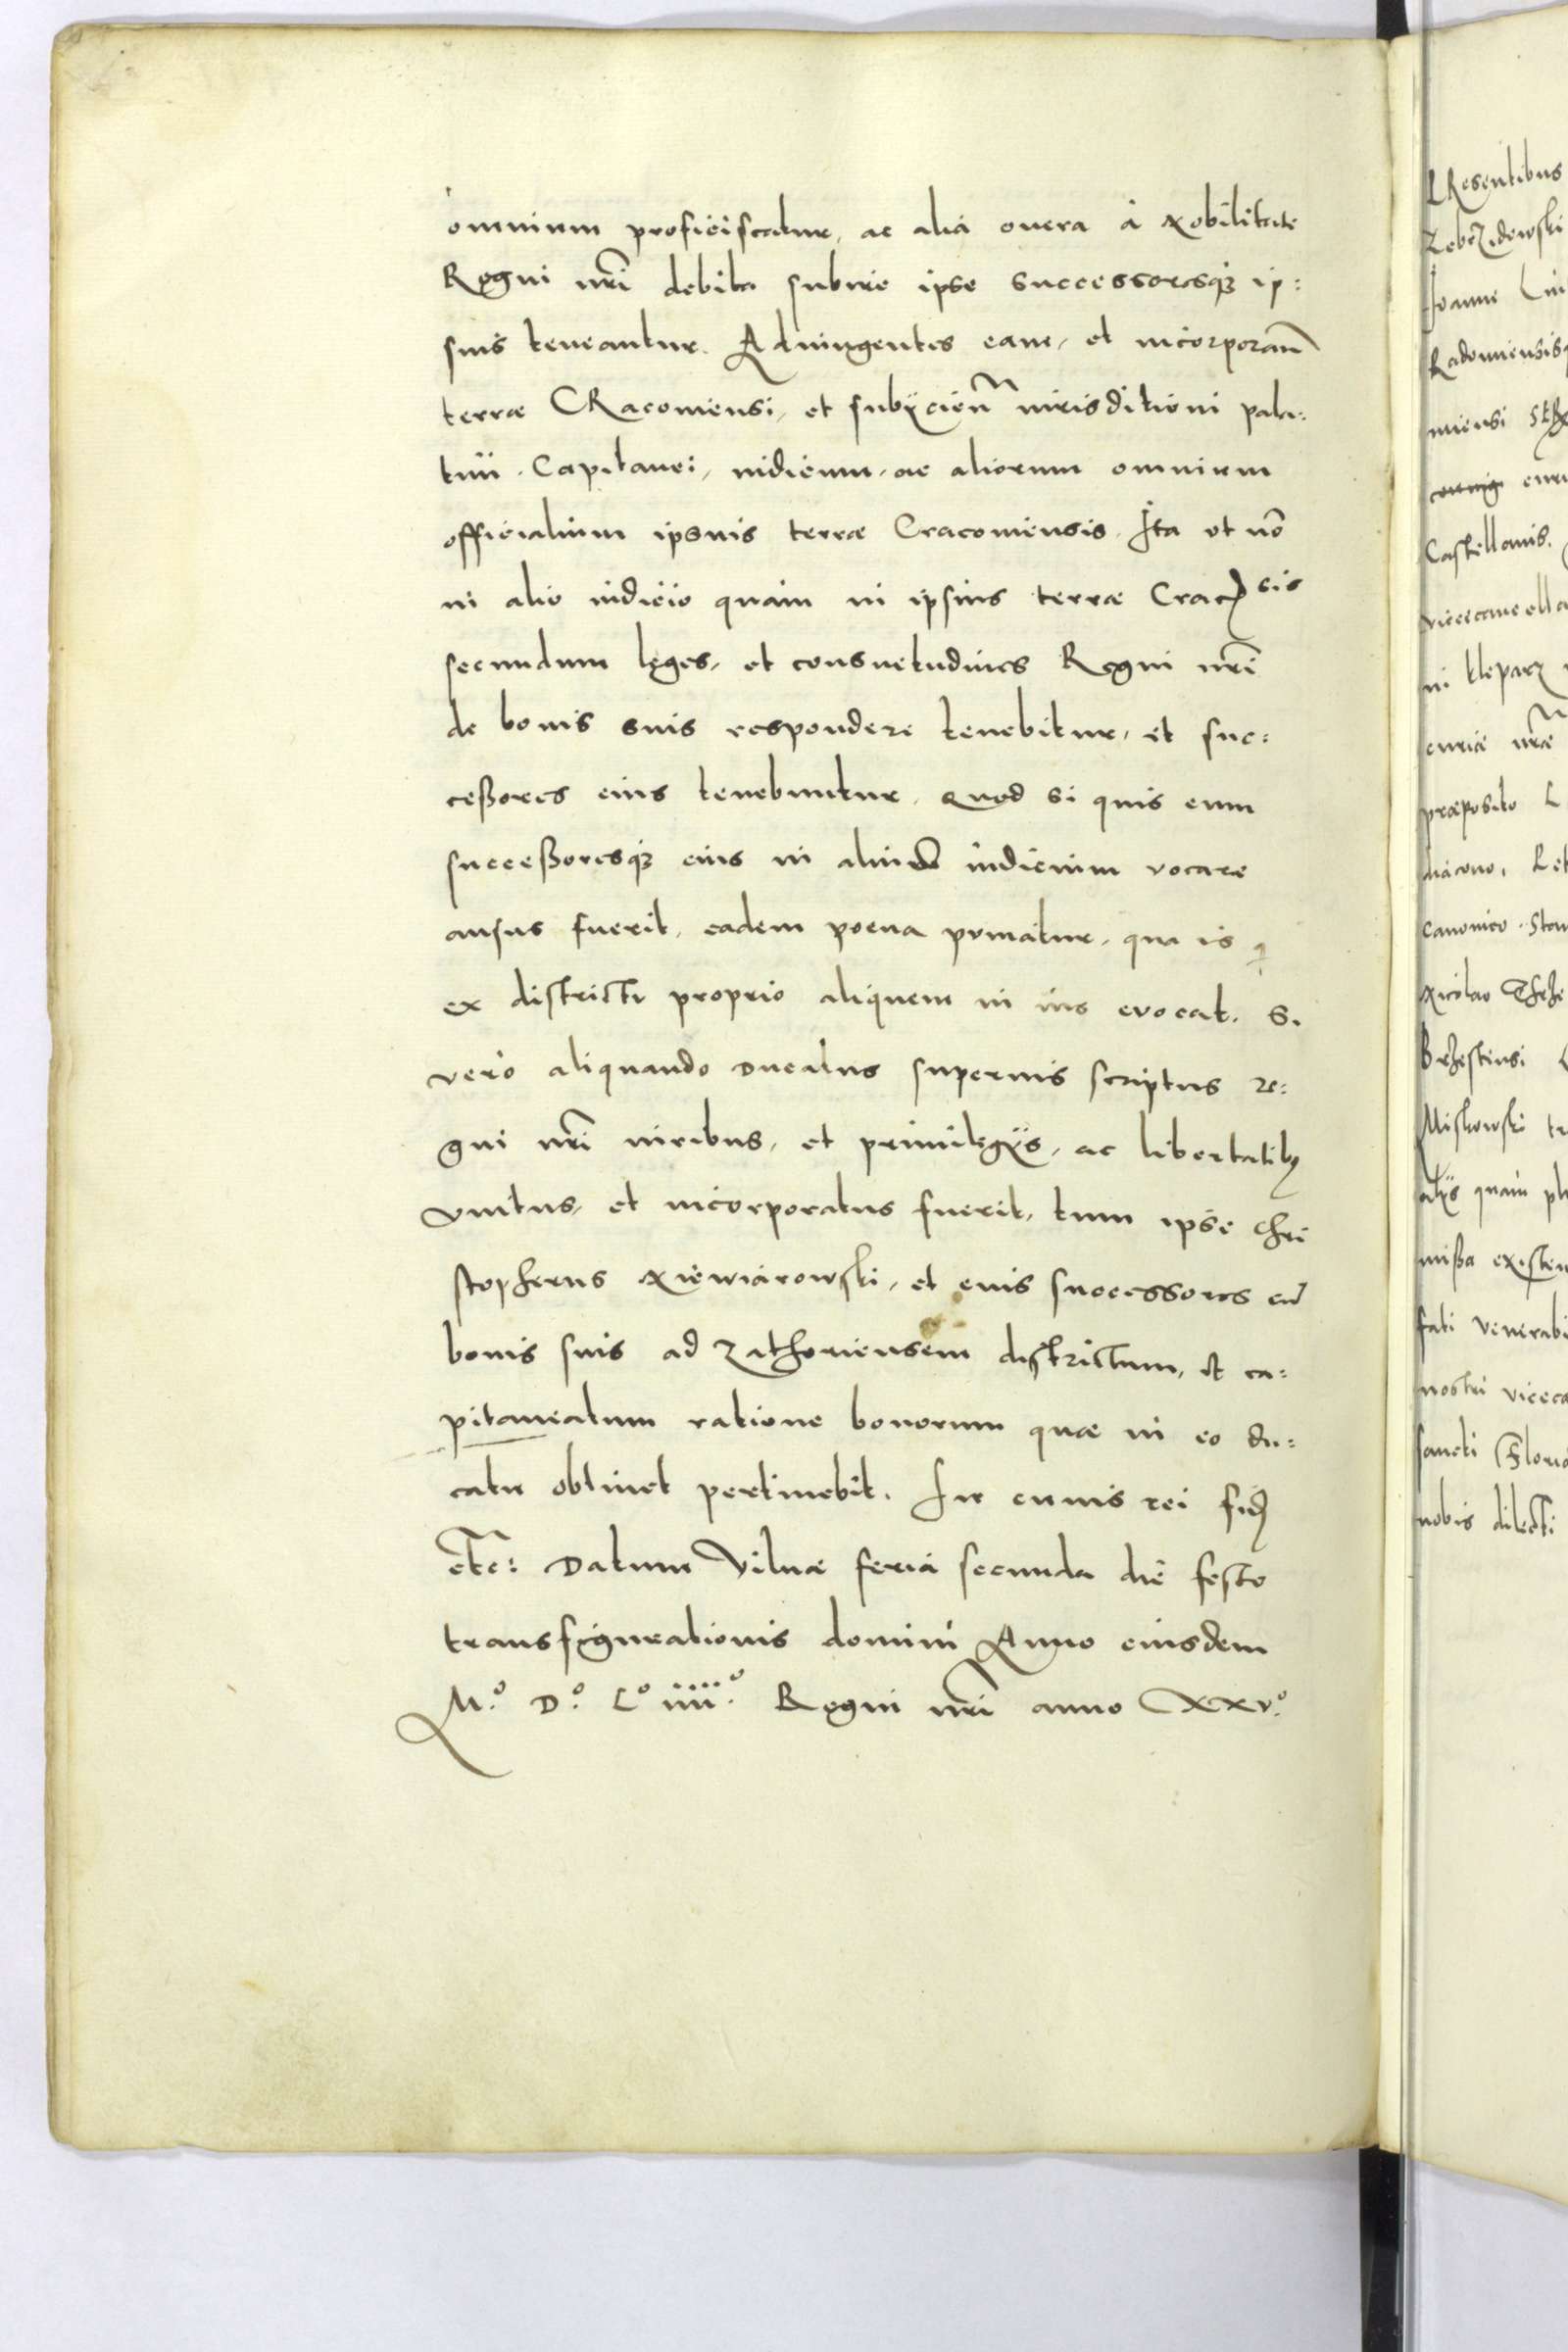 omnium proficiscatur, ac alia onera à Nobilitate
Regni nr̃i debita subire ipse successoresq́3 ip:
sius teneantur. Adiungentes eam, et incorporañ
terræ CRacouiensi, et subijcień iurisditioni pala:
tini. Capitanei, iudicum, ac aliorum omnium
officialium ipsius terræ Cracouiensis. Ita ut nõ
in alio iudicio quàm in ipsius terræ Crac̃sis
secundum leges, et consuetudines Regni nr̃i
de bonis suis respondere tenebitur, et suc:
ceßores eius tenebuntur. Quod si quis eum
succeßoresq́3 eius in aliud iudicium vocare
ausus fuerit, eadem poena puniatur, qua is q
ex districtu proprio aliquem in ius euocat. Si
verò aliquando Ducatus superius scriptus re:
gni nr̃i iuribus, et priuilegijs, ac libertatib9
vnitus, et incorporatus fuerit, tum ipse Chri
stopherus Niewiarowski, et eius successores cũ
bonis suis ad Zathoriensem districtum, et ca:
pitaneatum ratione bonorum quæ in eo du:
catu obtinet pertinebit. In cuius rei fid̃
etc̃: Datum Vilnæ feria secunda die festo
transfigurationis domini Anno eiusdem
M.º D.º L.º iiii.º Regni nr̃i anno XXv.º
PResentibus
Zebrzidowski
Ioanne
Radomiensis
curi
Castellanis.
vicecancella
in Kleparz
curiæ nr̃æ
præposito L
diacono,
canonico. Stan
Nicolao
Brzestensi
Miskowski
alijs quàm pl
mißa existen
fati venerabi
nostri viceca
sancti Floria
nobis dilecti